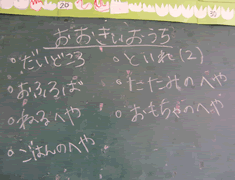 おおきいおうち
○だいどころ
○おふろば
○ねるへや
○ごはんのへや
○といれ(2)
○たたみのへや
○おもちゃのへや
20